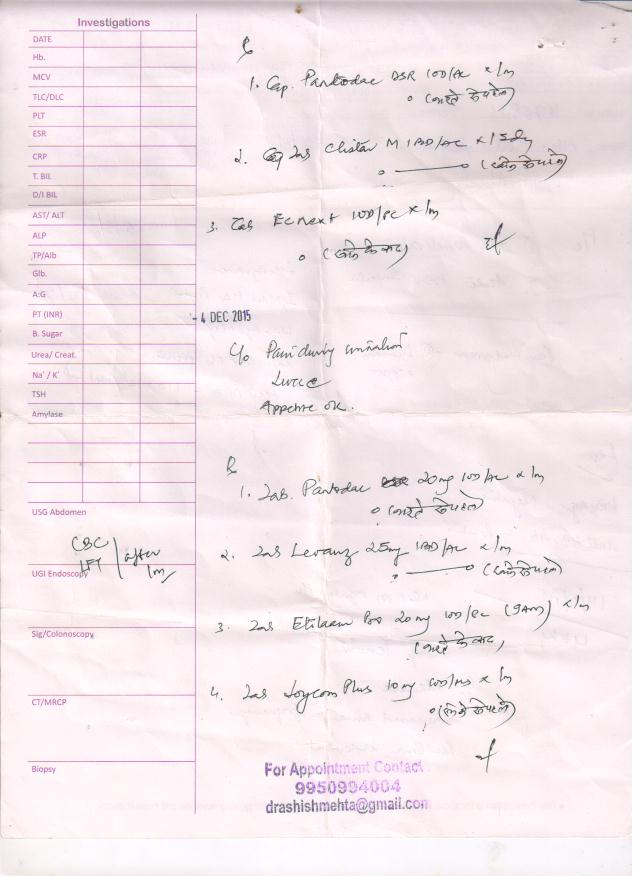 Investigations
DATE
Hb.
MCV
TLC/DLC
PLT
ESR
CRP
T. BIL
D/I BIL
AST/ ALT
ALP
TP/Alb
Glb.
A:G
PT (INR)
B. Sugar
Urea/ Creat.
Na⁺ / K⁺
TSH
Amylase
USG Abdomen
CBC
LFT after
1m
UGI Endoscopy
Sig/Colonoscopy
CT/MRCP
Biopsy
℞
1. Cap. Pantodac DSR 1OD/AC x 1m
(नाश्ते से पहले)
2. Tab M 1BD/AC x 15dy
(खाने से पहले)
3. Tab 1OD/PC x 1m
(खाने के बाद)
- 4 DEC 2015
C/o Pain during
Appetite OK.
℞
1. Tab. Pantodac 20mg 1OD/AC x 1m
(नाश्ते से पहले)
2. Tab 25mg 1BD/AC x 1m
(खाने से पहले)
3. Tab Etilaam Pro 20mg 1OD/PC (9AM) x 1m
(नाश्ते के बाद)
4. Tab Plus 10mg x 1m
For Appointment Contact
9950994004
drashishmehta@gmail.com